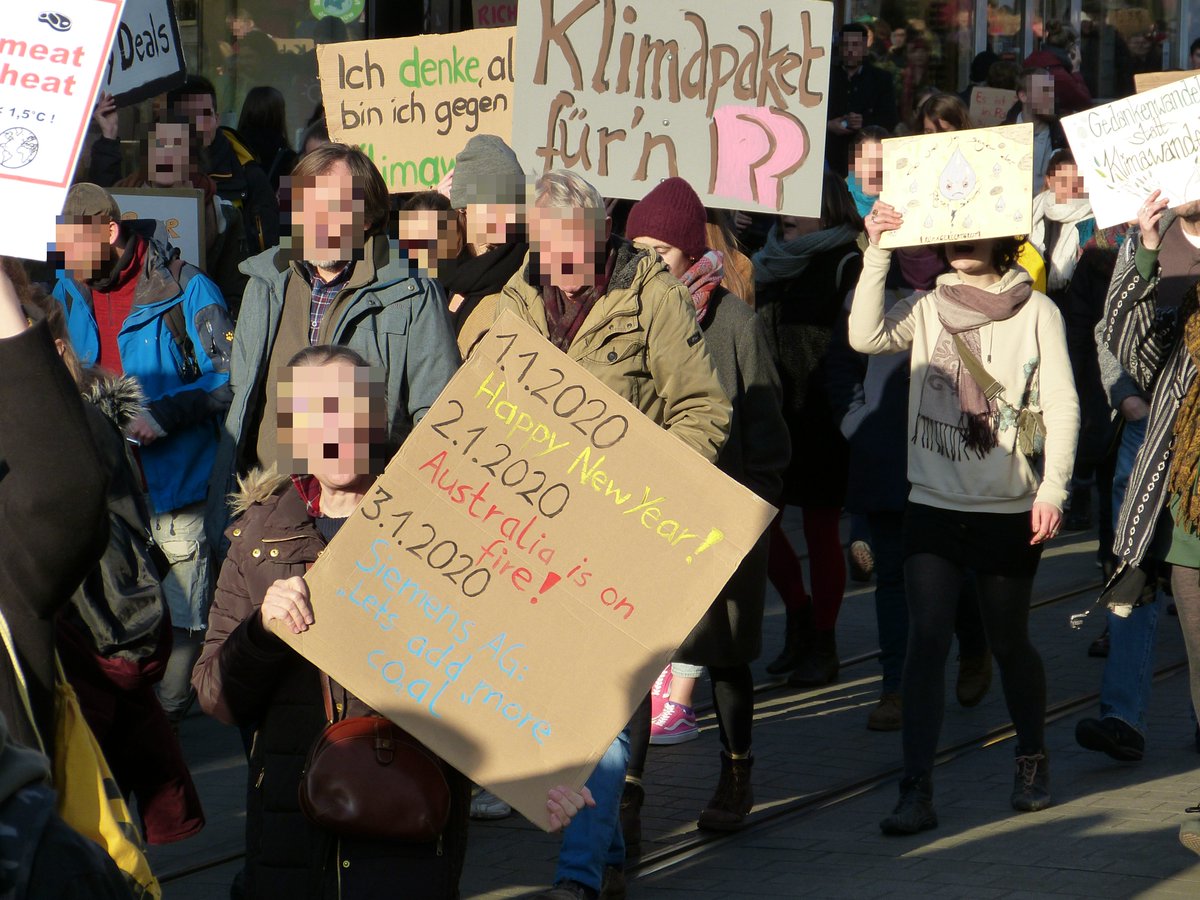 meat
heat
1,5°C!
Deals
Ich denke, al
bin ich gegen
Klimaw
Klimapaket
für'n
Gedankenwande
statt
Klimawand
1.1.2020
Happy New Year!
2.1.2020
Australia is on
fire!
3.1.2020
Siemens AG:
„Lets add more
coal"